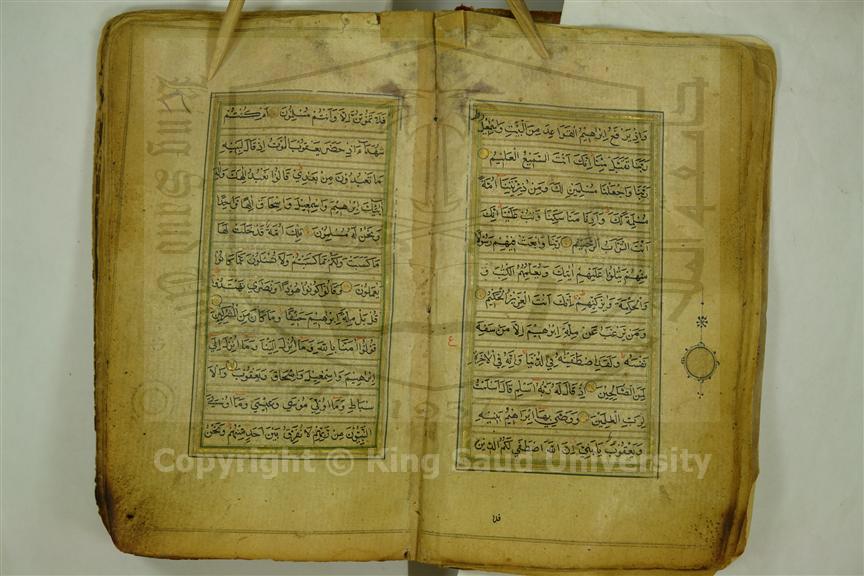 واذ يرفع ابراهيم القواعد من البيت واسمعيل
ربنا تقبل منا انك انت السميع العليم
ربنا واجعلنا مسلمين لك ومن ذريتنا امة
مسلمة لك وارنا مناسكنا وتب علينا انك
انت التواب الرحيم ربنا وابعث فيهم رسولا
منهم يتلوا عليهم ايتك ويعلمهم الكتب و
والحكمة ويزكيهم انك انت العزيز الحكيم
ومن يرغب عن ملة ابرهيم الا من سفه
نفسه ولقد اصطفينه في الدنيا وانه في الاخرة
لمن الصالحين اذ قال له ربه اسلم قال اسلمت
لرب العلمين ووصى بها ابراهيم بنيه
ويعقوب يا بني ان الله اصطفى لكم الدين
فلا
ع
فلا تموتن الا وانتم مسلمون ام كنتم
شهداء اذ حضر يعقوب الموت اذ قال لبنيه
ما تعبدون من بعدي قالوا نعبد الهك واله
ابائك ابرهيم واسمعيل واسحاق الها واحدا
ونحن له مسلمون تلك امة قد خلت لها
ما كسبت ولكم ما كسبتم ولا تسئلون عما كانوا
يعملون وقالوا كونوا هودا او نصارى تهتدوا
قل بل ملة ابرهيم حنيفا وما كان من المشركين
قولوا امنا بالله وما انزل الينا وما انزل الى
ابرهيم واسمعيل واسحاق ويعقوب والا
سباط وما اوتي موسى وعيسى وما اوتي
النبيون من ربهم لا نفرق بين احد منهم ونحن
King Saud University
جامعة الملك سعود
1957
Copyright © King Saud University